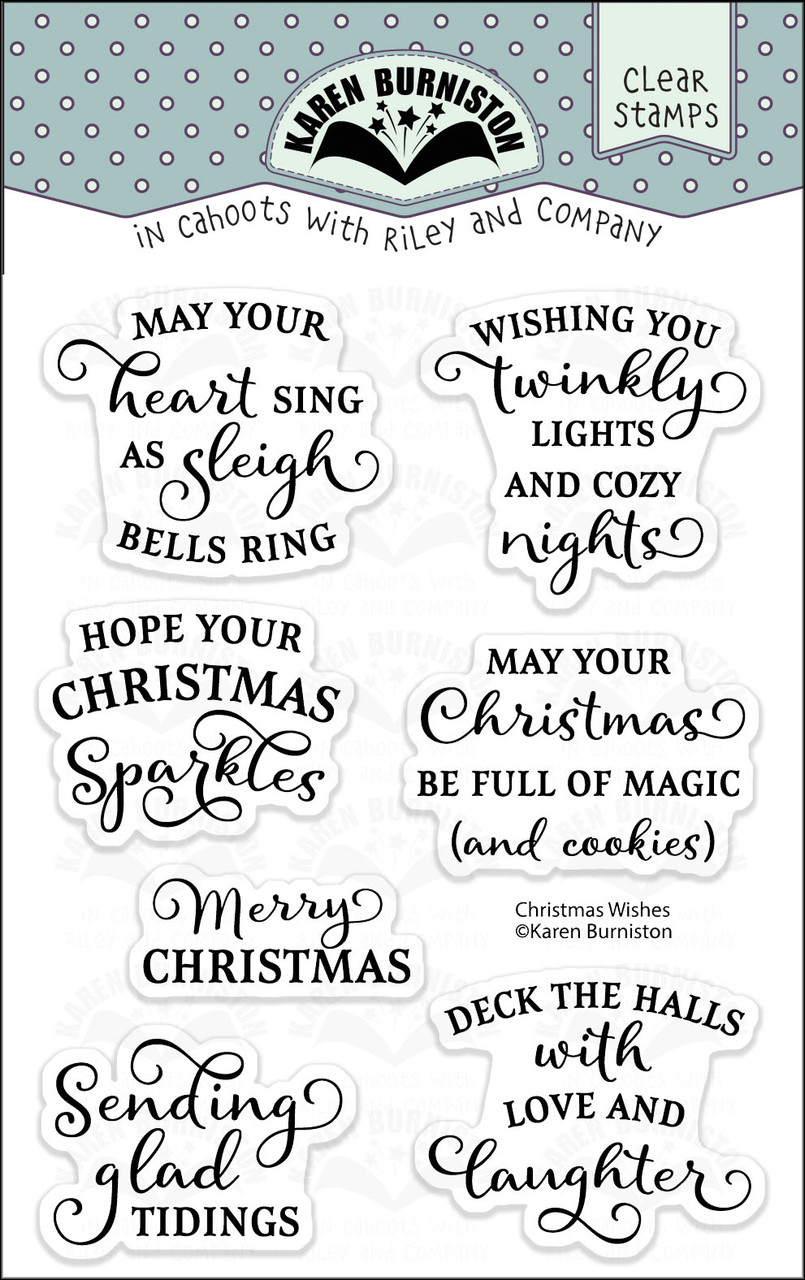 KAREN BURNISTON
CLEAR
STAMPS
iN CaHOOTS WiTH RiLEY aND COMPANY
MAY YOUR
heart SING
AS sleigh
BELLS RING
WISHING YOU
twinkly
LIGHTS
AND COZY
nights
HOPE YOUR
CHRISTMAS
Sparkles
MAY YOUR
Christmas
BE FULL OF MAGIC
(and cookies)
Merry
CHRISTMAS
Christmas Wishes
©Karen Burniston
Sending
glad
TIDINGS
DECK THE HALLS
with
LOVE AND
laughter